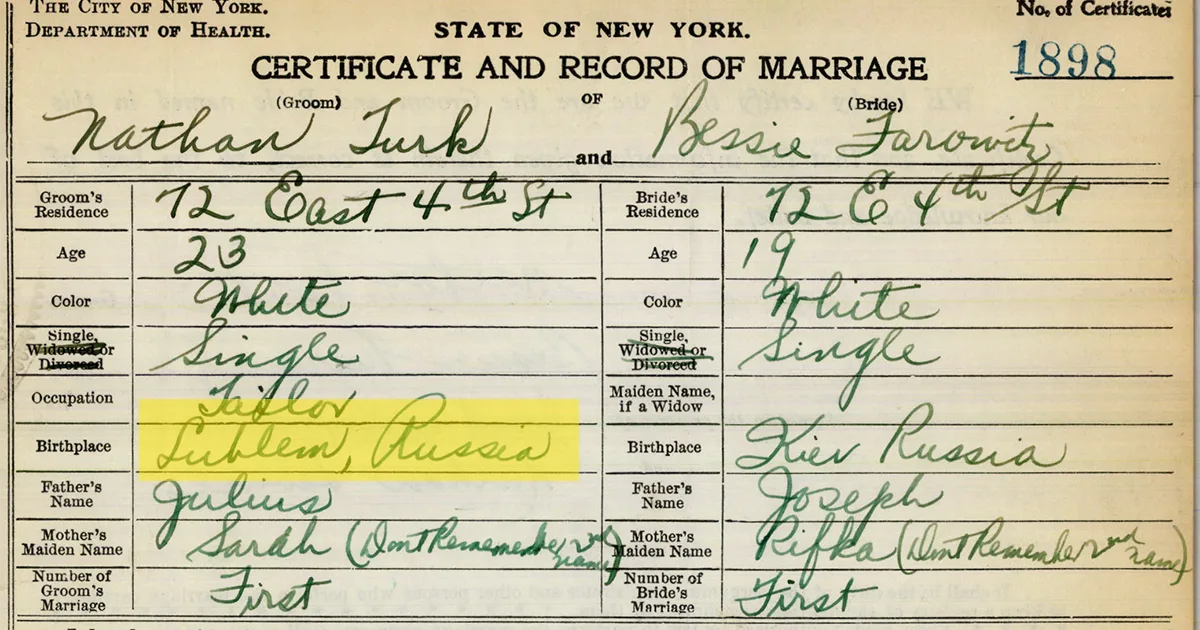 THE CITY OF NEW YORK.
DEPARTMENT OF HEALTH.
STATE OF NEW YORK.
No. of Certificate
1898
CERTIFICATE AND RECORD OF MARRIAGE
(Groom) OF (Bride)
Nathan Turk and Bessie Farowitz
Groom's Residence 72 East 4th St Bride's Residence 72 E 4th St
Age 23 Age 19
Color White Color White
Single, Widowed or Divorced Single Single, Widowed or Divorced Single
Occupation Tailor Maiden Name, if a Widow
Birthplace Lublem, Russia Birthplace Kiev Russia
Father's Name Julius Father's Name Joseph
Mother's Maiden Name Sarah (Dont Rememember 2nd name) Mother's Maiden Name Rifka (Dont Remember 2nd name)
Number of Groom's Marriage First Number of Bride's Marriage First